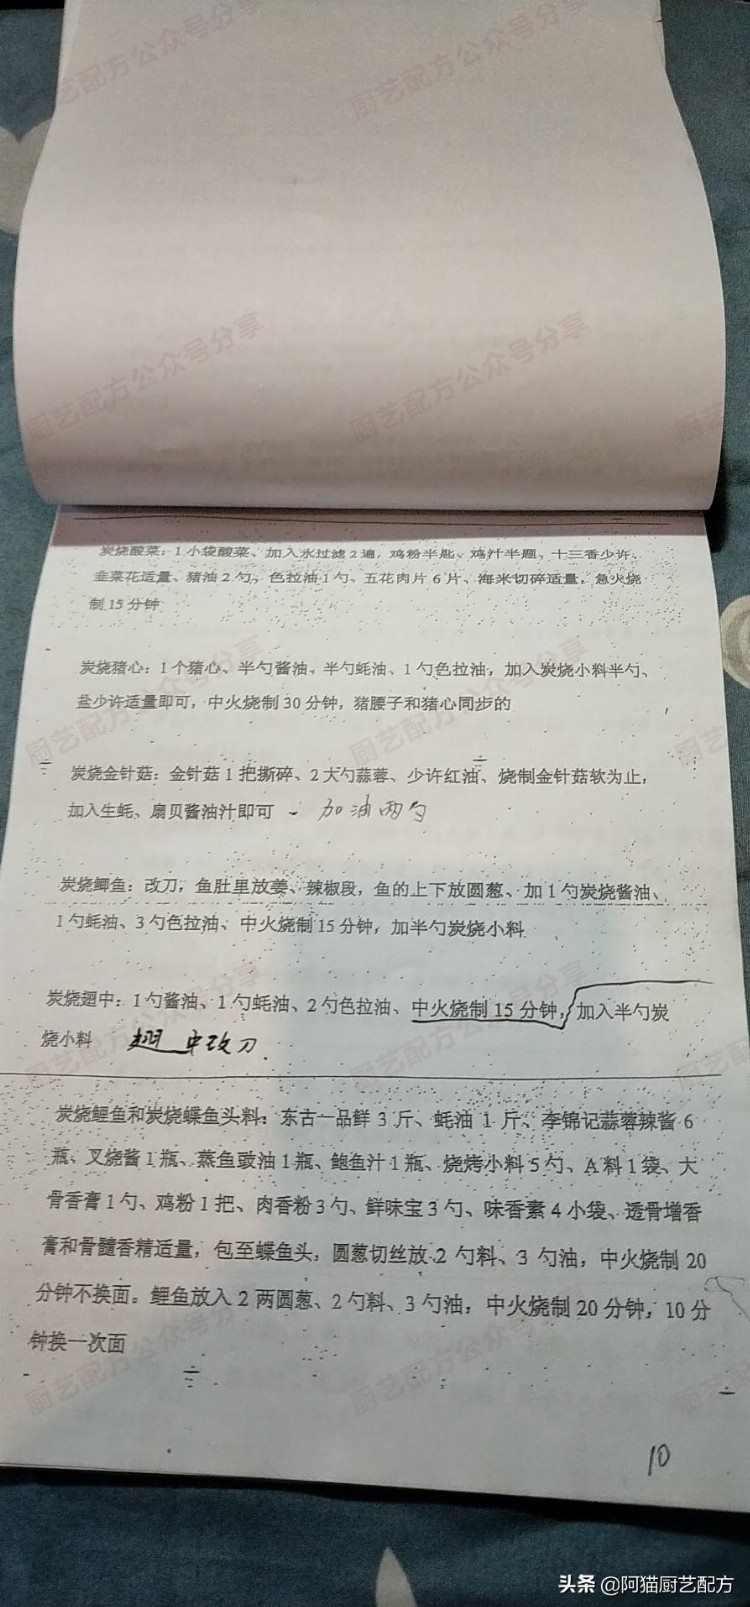 炭烧酸菜：1小袋酸菜、加入水过滤2遍，鸡粉半匙、鸡汁半匙、十三香少许、
韭菜花适量、猪油2勺、色拉油1勺、五花肉片6片、海米切碎适量，急火烧
制15分钟
炭烧猪心：1个猪心、半勺酱油、半勺蚝油、1勺色拉油，加入炭烧小料半勺、
盐少许适量即可，中火烧制30分钟，猪腰子和猪心同步的
炭烧金针菇：金针菇1把撕碎、2大勺蒜蓉、少许红油、烧制金针菇软为止，
加入生蚝、扇贝酱油汁即可 - 加油两勺
炭烧鲫鱼：改刀，鱼肚里放姜、辣椒段，鱼的上下放圆葱、加1勺炭烧酱油、
1勺蚝油、3勺色拉油、中火烧制15分钟，加半勺炭烧小料
炭烧翅中：1勺酱油、1勺蚝油、2勺色拉油、中火烧制15分钟，加入半勺炭
烧小料 翅中改刀.
炭烧鲤鱼和炭烧蝶鱼头料：东古一品鲜3斤、蚝油1斤、李锦记蒜蓉辣酱6
瓶、叉烧酱1瓶、蒸鱼豉油1瓶、鲍鱼汁1瓶、烧烤小料5勺、A料1袋、大
骨香膏1勺、鸡粉1把、肉香粉3勺、鲜味宝3勺、味香素4小袋、透骨增香
膏和骨髓香精适量，包至蝶鱼头，圆葱切丝放2勺料、3勺油，中火烧制20
分钟不换面。鲤鱼放入2两圆葱、2勺料、3勺油，中火烧制20分钟，10分
钟换一次面
10
厨艺配方公众号分享
头条 @阿猫厨艺配方